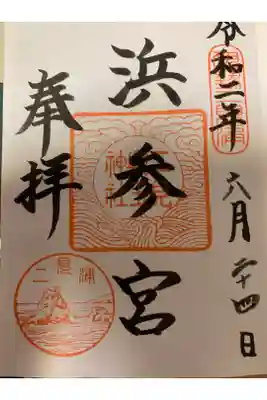 令和二年
六月二十四日
浜参宮
奉拝
神社
二見浦